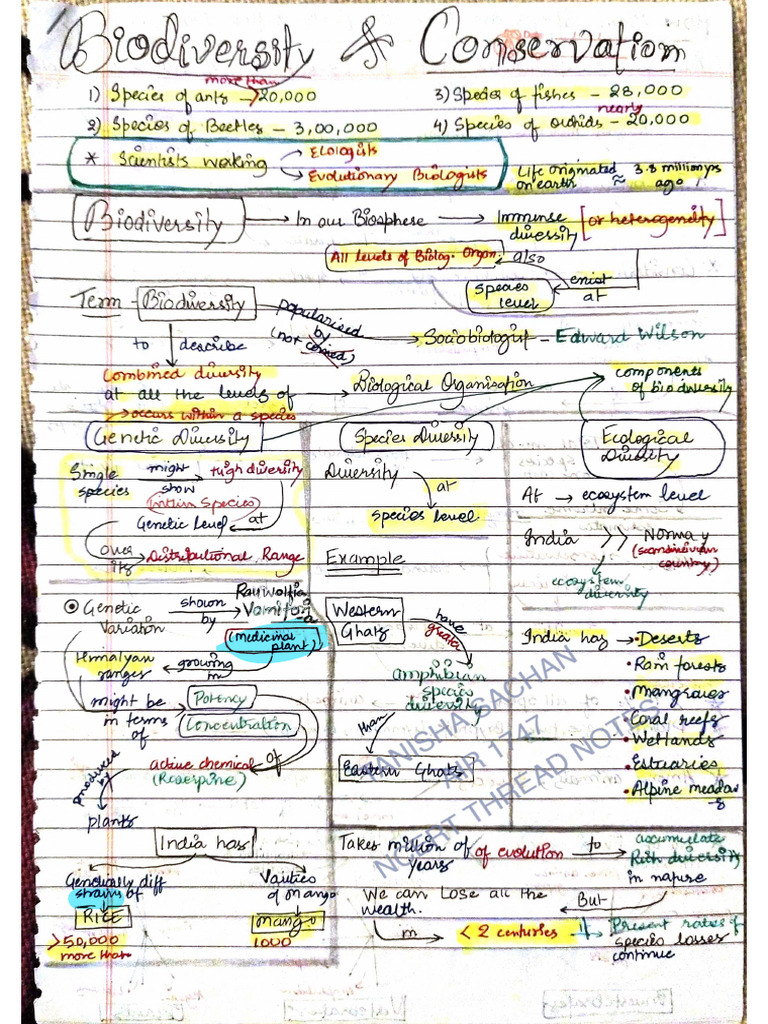 Biodiversity & Conservation
more than
1) Species of ants → 20,000
3) Species of fishes - 28,000
nearly
2) Species of Beetles - 3,00,000
4) Species of orchids - 20,000
* Scientists working
Elologists
Evolutionary Biologists
Life originated on earth ≈ 3.8 million yrs ago
Biodiversity → In our Biosphere → Immense diversity [or heterogeneity]
All levels of Biolog. Organ. also
Species level
exist at
Term - Biodiversity
popularised by (not coined)
Sociobiologist - Edward Wilson
to describe
Combined diversity at all the levels of → Biological Organisation
components of biodiversity
→ occurs within a species
Genetic Diversity
Single species might show high diversity
(within species)
Genetic level at
over its Distributional Range
Species Diversity
Diversity
at
species level
Ecological Diversity
At → ecosystem level
India >> Norway (scandinavian country)
ecosystem diversity
Example
Genetic Variation shown by Rauwolfia Vomitoria
(medicinal plant)
Himalyan ranges growing in
might be in terms of
Potency
Concentration
of
active chemical (Reserpine)
produced by
plants
Western Ghats
have greater
amphibian species diversity
than
Eastern Ghats
India has → • Deserts
• Rain forests
• Mangroves
• Coral reefs
• Wetlands
• Estuaries
• Alpine meadows
TANISHA SACHAN
AIR 1747
NCERT THREAD NOTES
India has
Genetically diff strains of
RICE
>50,000
more than
Vaities of mango
Mango
1000
Takes million of years of evolution to accumulate Rich diversity in nature
We can lose all the wealth. But
in < 2 centuries
Present rates of species losses continue